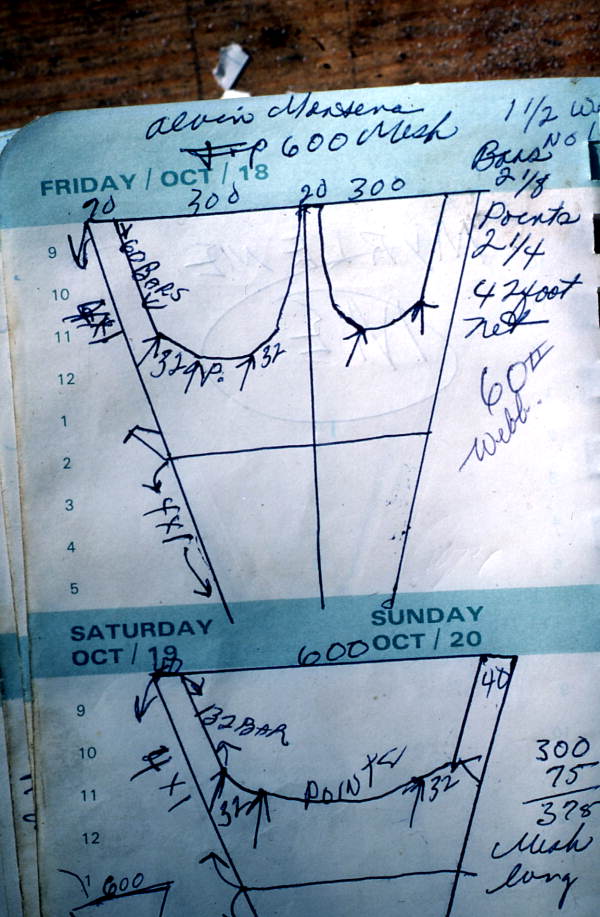 Alvin
600 Mesh
1 1/2
No
Bars
2 1/8
FRIDAY / OCT / 18
20 300 20 300
Points
2 1/4
42 foot
net
60#
Webb.
60 BARS
9
10
11
12
1
2
3
4
5
32 P. 32
4x1
SATURDAY
OCT / 19
SUNDAY
OCT / 20
600
40
132 BAR
9
10
11
12
1
4 x 1
32 POINTS 32
300
75
378
Mesh
long
600